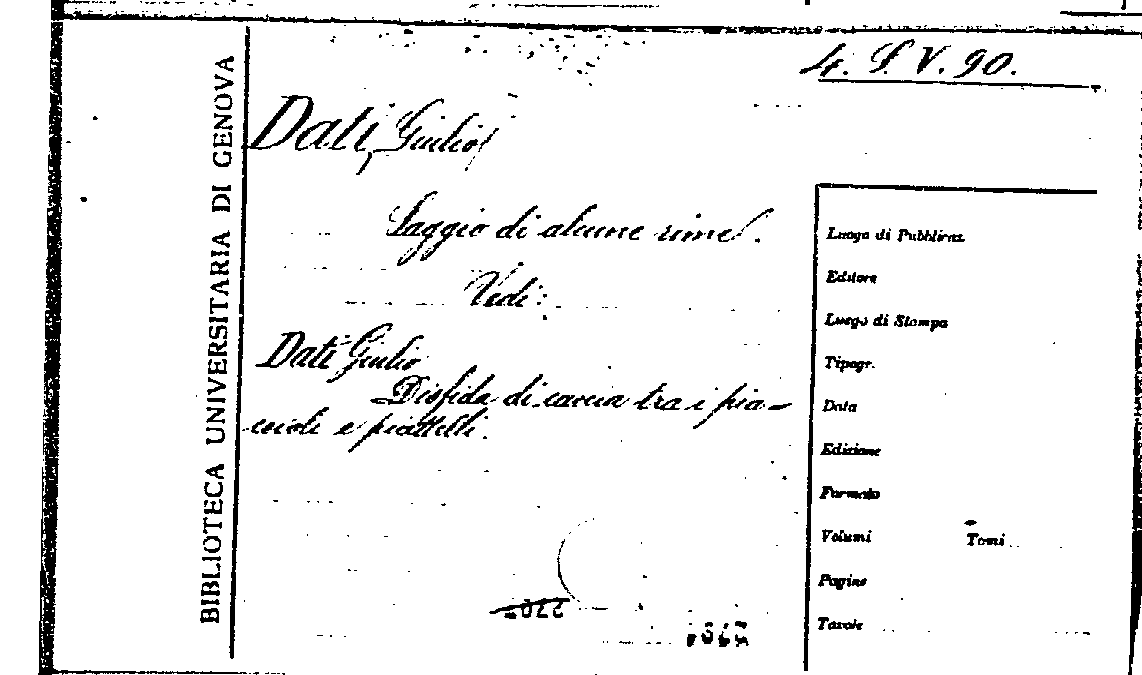 4. S. V. 90.
BIBLIOTECA UNIVERSITARIA DI GENOVA
Dati, Giulio
Saggio di alcune rime.
Vedi:
Dati Giulio
Disfida di caccia tra i pia-
cevoli e piattelli.
Luogo di Pubblicaz.
Editore
Luogo di Stampa
Tipogr.
Data
Edizione
Formato
Volumi Tomi
Pagine
Tavole